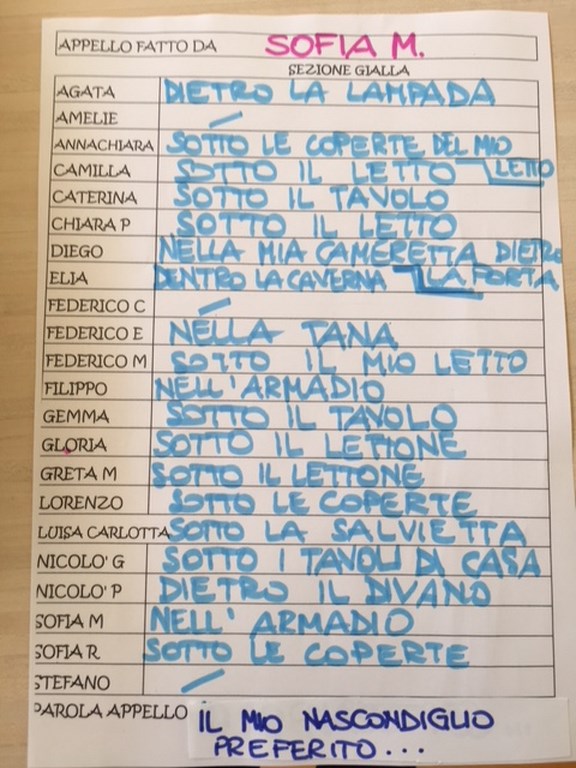 APPELLO FATTO DA SOFIA M.
SEZIONE GIALLA
AGATA DIETRO LA LAMPADA
AMELIE /
ANNACHIARA SOTTO LE COPERTE DEL MIO LETTO
CAMILLA SOTTO IL LETTO
CATERINA SOTTO IL TAVOLO
CHIARA P SOTTO IL LETTO
DIEGO NELLA MIA CAMERETTA DIETRO LA PORTA
ELIA DENTRO LA CAVERNA
FEDERICO C /
FEDERICO E NELLA TANA
FEDERICO M SOTTO IL MIO LETTO
FILIPPO NELL'ARMADIO
GEMMA SOTTO IL TAVOLO
GLORIA SOTTO IL LETTONE
GRETA M SOTTO IL LETTONE
LORENZO SOTTO LE COPERTE
LUISA CARLOTTA SOTTO LA SALVIETTA
NICOLO' G SOTTO I TAVOLI DI CASA
NICOLO' P DIETRO IL DIVANO
SOFIA M NELL'ARMADIO
SOFIA R SOTTO LE COPERTE
STEFANO /
PAROLA APPELLO IL MIO NASCONDIGLIO
PREFERITO...